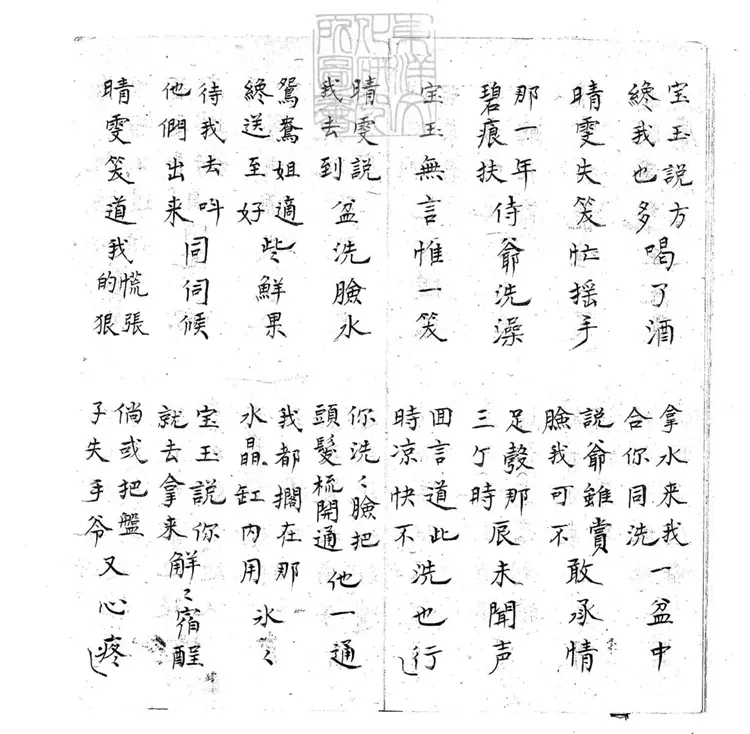 東洋文化研究所圖書
宝玉説方纔我也多喝了酒
拿水来我合你同洗一盆中
晴雯失笑忙揺手
説爺雖賞臉我可不敢承情
那一年碧痕扶侍爺洗澡
足彀那三个時辰未聞声
宝玉無言惟一笑
囬言道此時凉快不洗也行
晴雯説我去到盆洗臉水
你洗〻臉把頭髮梳開通他一通
鴛鴦姐適纔送至好些鮮果
我都擱在那水晶缸内用氷〻
待我去呌他們出来同伺候
宝玉説你就去拿来觧〻宿酲
晴雯笑道我慌張的狠
倘或把盤子失手爷又心疼